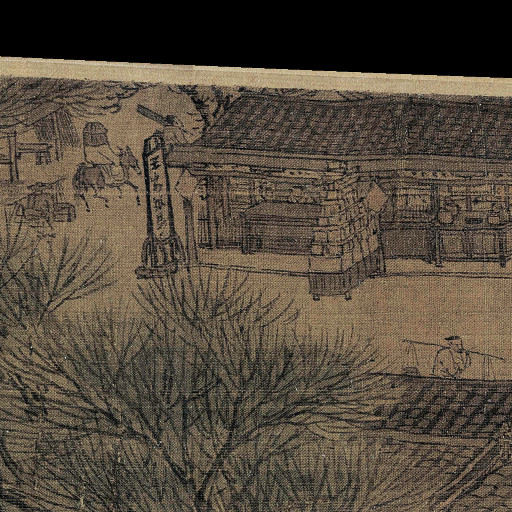 王家紙馬